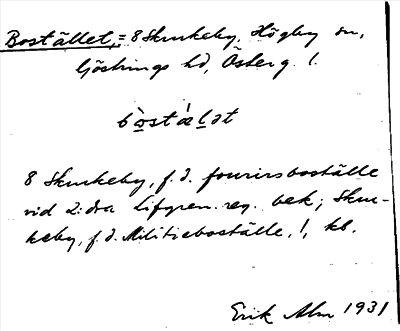 Bostället, = 8 Skurkeby, Högby sn,
Göstrings hd, Österg. l.
bòstálət
8 Skurkeby, f.d. fourirsboställe
vid 2:dra Lifgren. reg. bek; Skur-
keby, f.d. Militieboställe, !, kb.
Erik Alm 1931